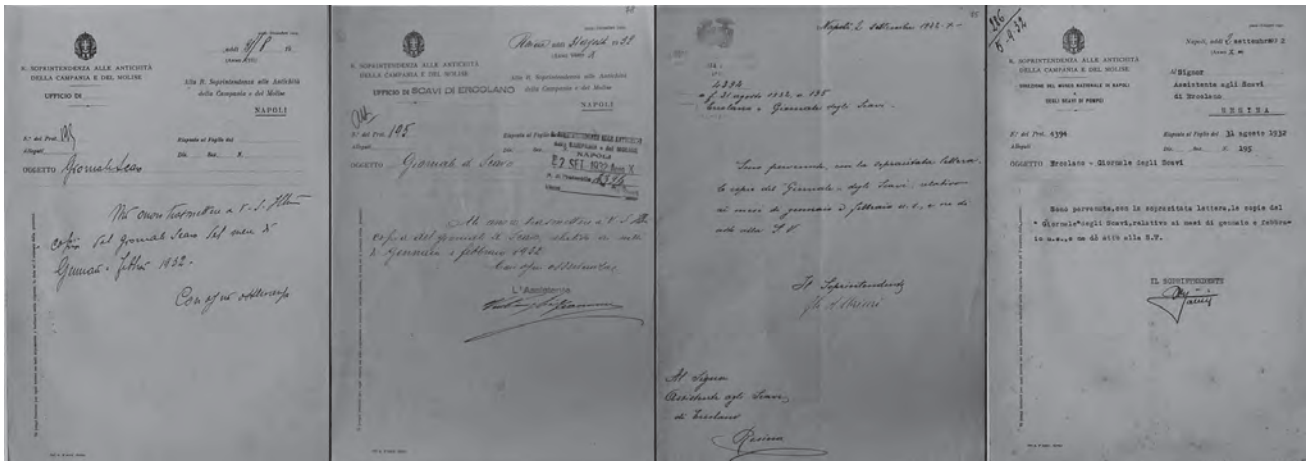 R. SOPRINTENDENZA ALLE ANTICHITÀ
DELLA CAMPANIA E DEL MOLISE
UFFICIO DI
addì 31/8
Alla R. Soprintendenza alle Antichità
della Campania e del Molise
NAPOLI
N.° del Prot. 195
Allegati
Risposta al Foglio del
Div. Sez. N.
OGGETTO Giornale Scavo
Mi onoro trasmettere a V. S. Ill.ma
copia del giornale Scavo del mese di
Gennaio - febbraio 1932.
Con ogni osservanza
R. SOPRINTENDENZA ALLE ANTICHITÀ
DELLA CAMPANIA E DEL MOLISE
UFFICIO DI SCAVI DI ERCOLANO
Resina addì 31 agosto 1932
(Anno X
Alla R. Soprintendenza alle Antichità
della Campania e del Molise
NAPOLI
N.° del Prot. 195
Allegati
Risposta al Foglio
NAPOLI
2 SET. 1932 Anno X
4394
OGGETTO Giornale di Scavo
Mi onoro trasmettere a V. S. Ill.
copia del giornale di Scavo, relativo ai mesi
di Gennaio e febbraio 1932.
Con ogni osservanza
L'Assistente
Napoli, 2 settembre 1932 - X -
4394
a f. 31 agosto 1932, n. 195
Ercolano - Giornale degli Scavi.
Sono pervenute, con la sopracitata lettera,
le copie del "Giornale" degli Scavi, relativo
ai mesi di gennaio e febbraio u.s., e ne dò
atto alla S. V.
Il Soprintendente
Al Signor
Assistente agli Scavi
di Ercolano
Resina
286
5.9.32
R. SOPRINTENDENZA ALLE ANTICHITÀ
DELLA CAMPANIA E DEL MOLISE
DIREZIONE DEL MUSEO NAZIONALE DI NAPOLI
E
DEGLI SCAVI DI POMPEI
Napoli, addì 2 settembre 193 2
(Anno X
Al Signor
Assistente agli Scavi
di Ercolano
RESINA
N.° di Prot. 4394
Allegati
Risposta al Foglio del 31 agosto 1932
Div. Sez. N. 195
OGGETTO Ercolano - Giornale degli Scavi
Sono pervenute, con la sopracitata lettera, le copie del
"Giornale" degli Scavi, relativo ai mesi di gennaio e febbra-
io u.s., e ne dò atto alla S.V.
IL SOPRINTENDENTE